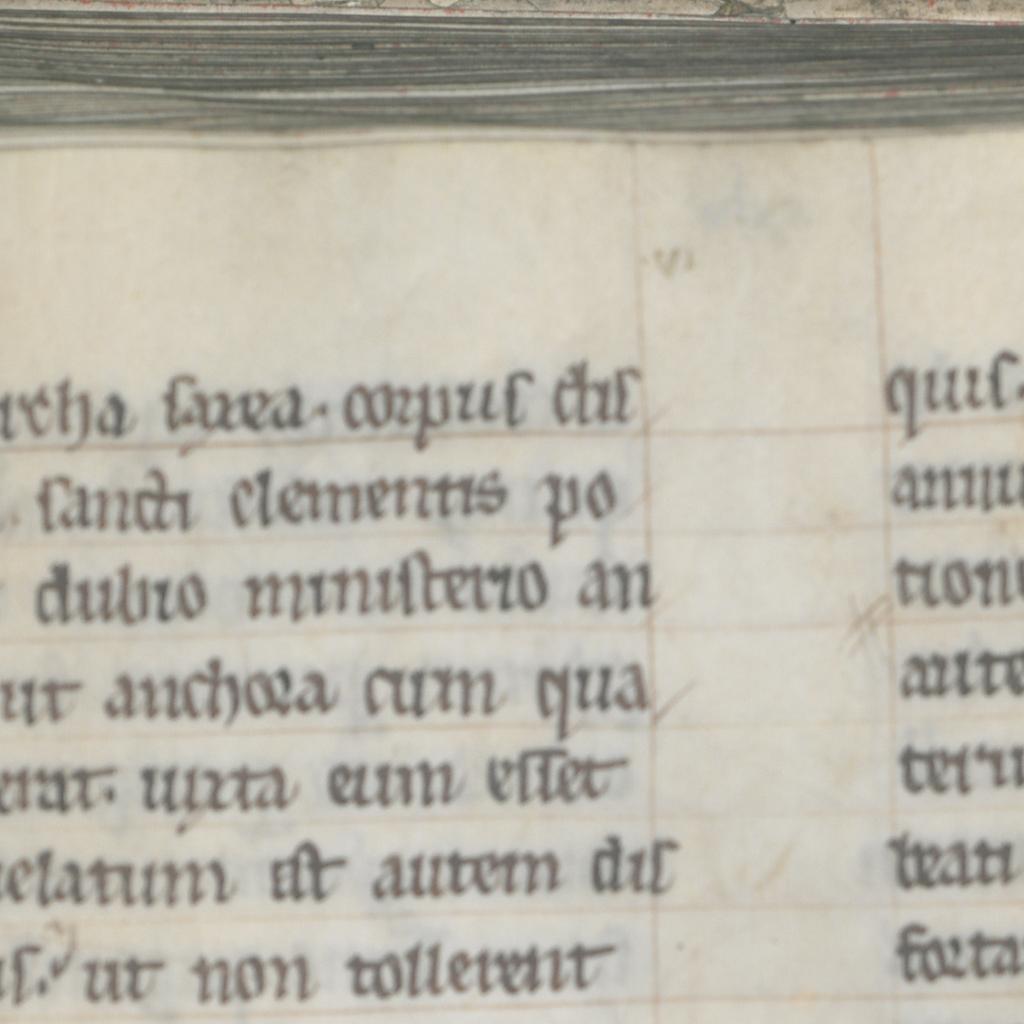 archa saxea. corpus illis
sancti clementis po
dubio ministerio an
ut anchora cum qua
erat. iuxta eum esset
uelatum est autem dis
ut non tollerent
quis.
tioni
aute
beati
forta